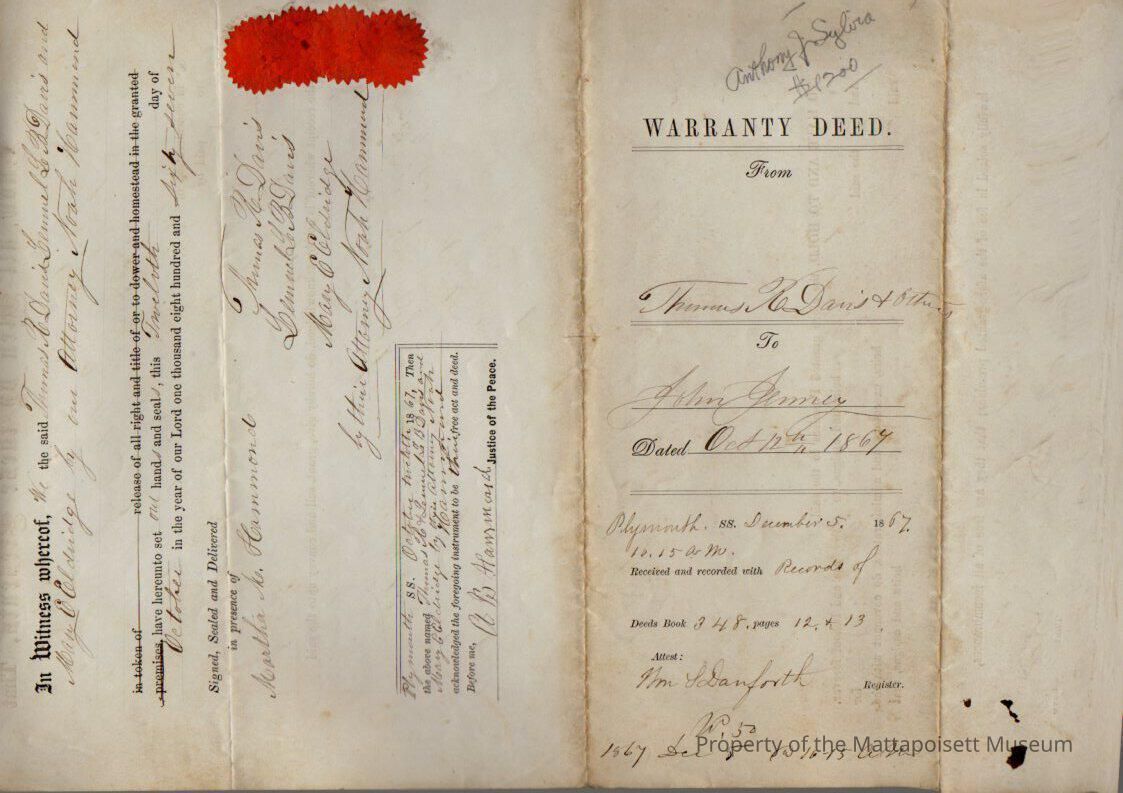 In Witness whereof, We the said Thomas R Davis Lemuel L B Davis and
Mary C Eldridge by our Attorney Noah Hammond
in token of release of all right and title of or to dower and homestead in the granted
premises, have hereunto set our hands and seals, this Twelfth day of
October in the year of our Lord one thousand eight hundred and sixty seven
Signed, Sealed and Delivered
in presence of
Martha M. Hammond
Thomas R Davis
Lemuel L B Davis
Mary C Eldridge
by their Attorney Noah Hammond
Plymouth SS. October twelfth 1867, Then
the above named Thomas R & Lemuel L B Davis and
Mary C Eldridge by their Attorney Noah
Hammond
acknowledged the foregoing instrument to be their free act and deed.
Before me, Justice of the Peace.
Anthony J Sylvia
WARRANTY DEED.
From
Thomas R Davis & Others
To
John Jenney
Dated Oct 12th 1867
Plymouth. SS. December 5. 1867.
10.15 A M.
Received and recorded with Records of
Deeds Book 348. pages 12 & 13
Attest:
Wm S Danforth Register.
1867 Dec 5
Property of the Mattapoisett Museum